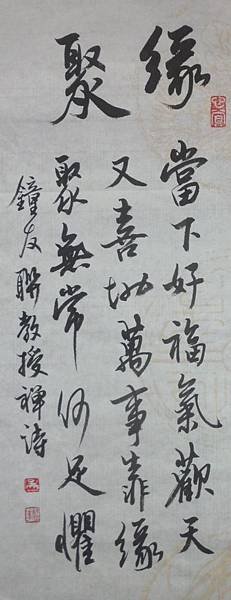 緣聚
當下好福氣歡天
又喜地萬事靠緣
聚無常何足懼
鐘友聯教授禪詩